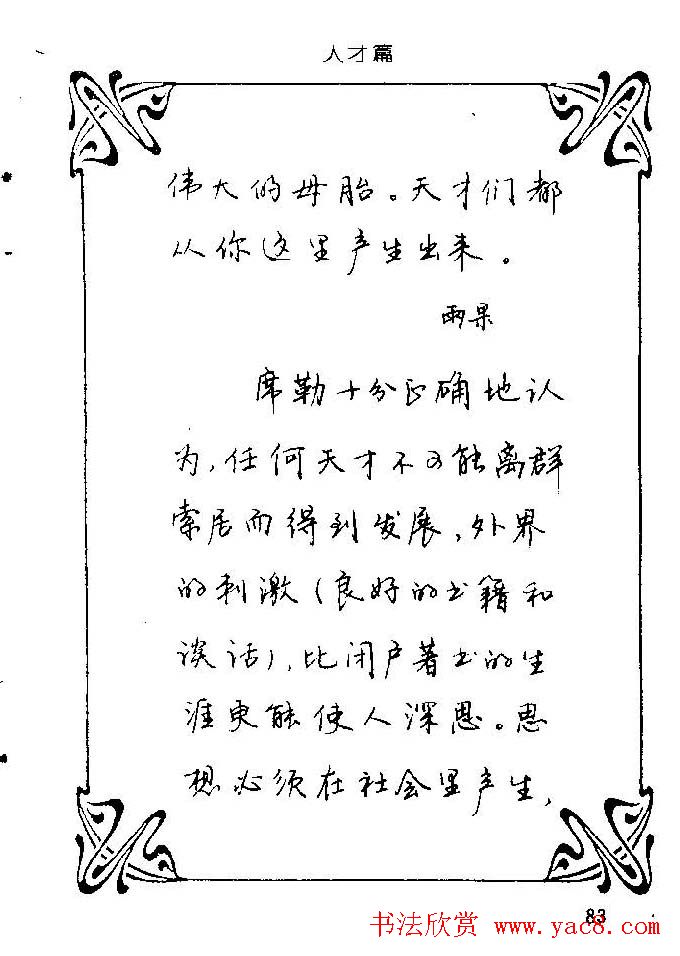 人才篇
伟大的母胎。天才们都
从你这里产生出来。
雨果
席勒十分正确地认
为,任何天才不可能离群
索居而得到发展,外界
的刺激(良好的书籍和
谈话),比闭户著书的生
涯更能使人深思。思
想必须在社会里产生,
83
书法欣赏 www.yac8.com